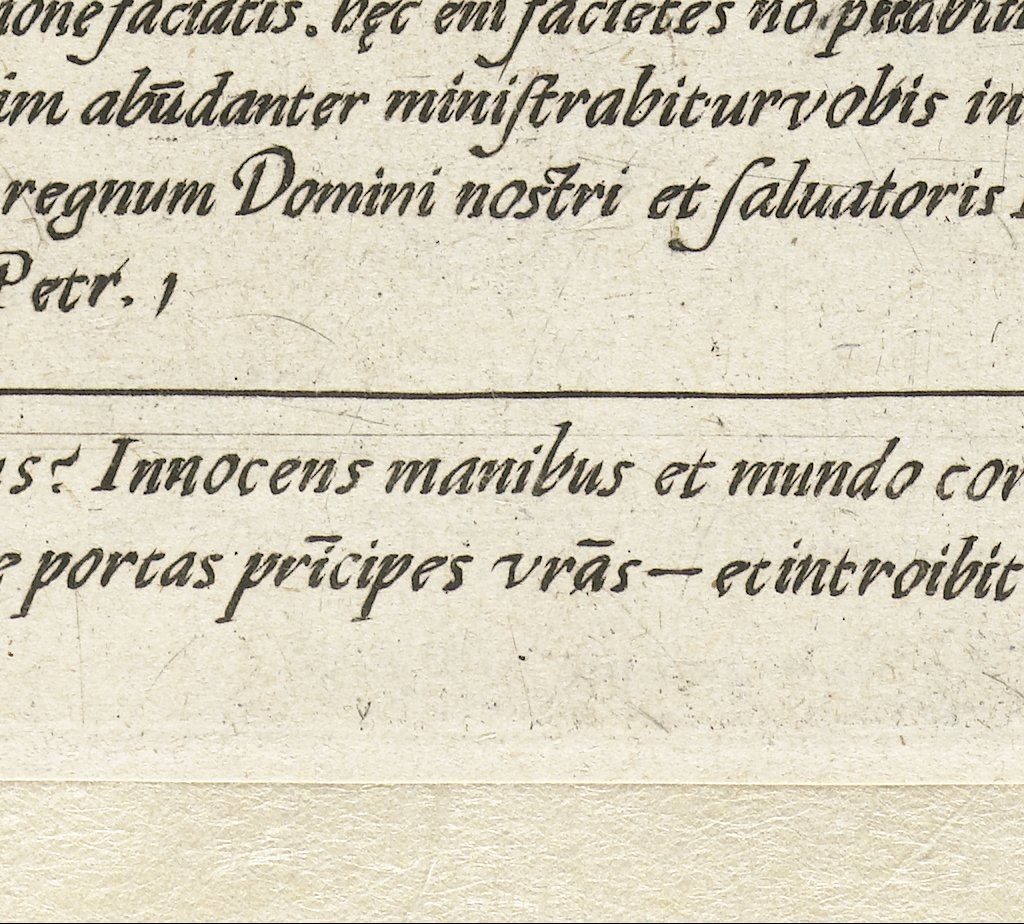 ione faciatis. hęc eni facietes nō peccabitis
im abūdanter ministrabitur vobis in
regnum Domini nostri et saluatoris
Petr. 1
us? Innocens manibus et mundo cor
e portas prīcipes vrās — et introibit